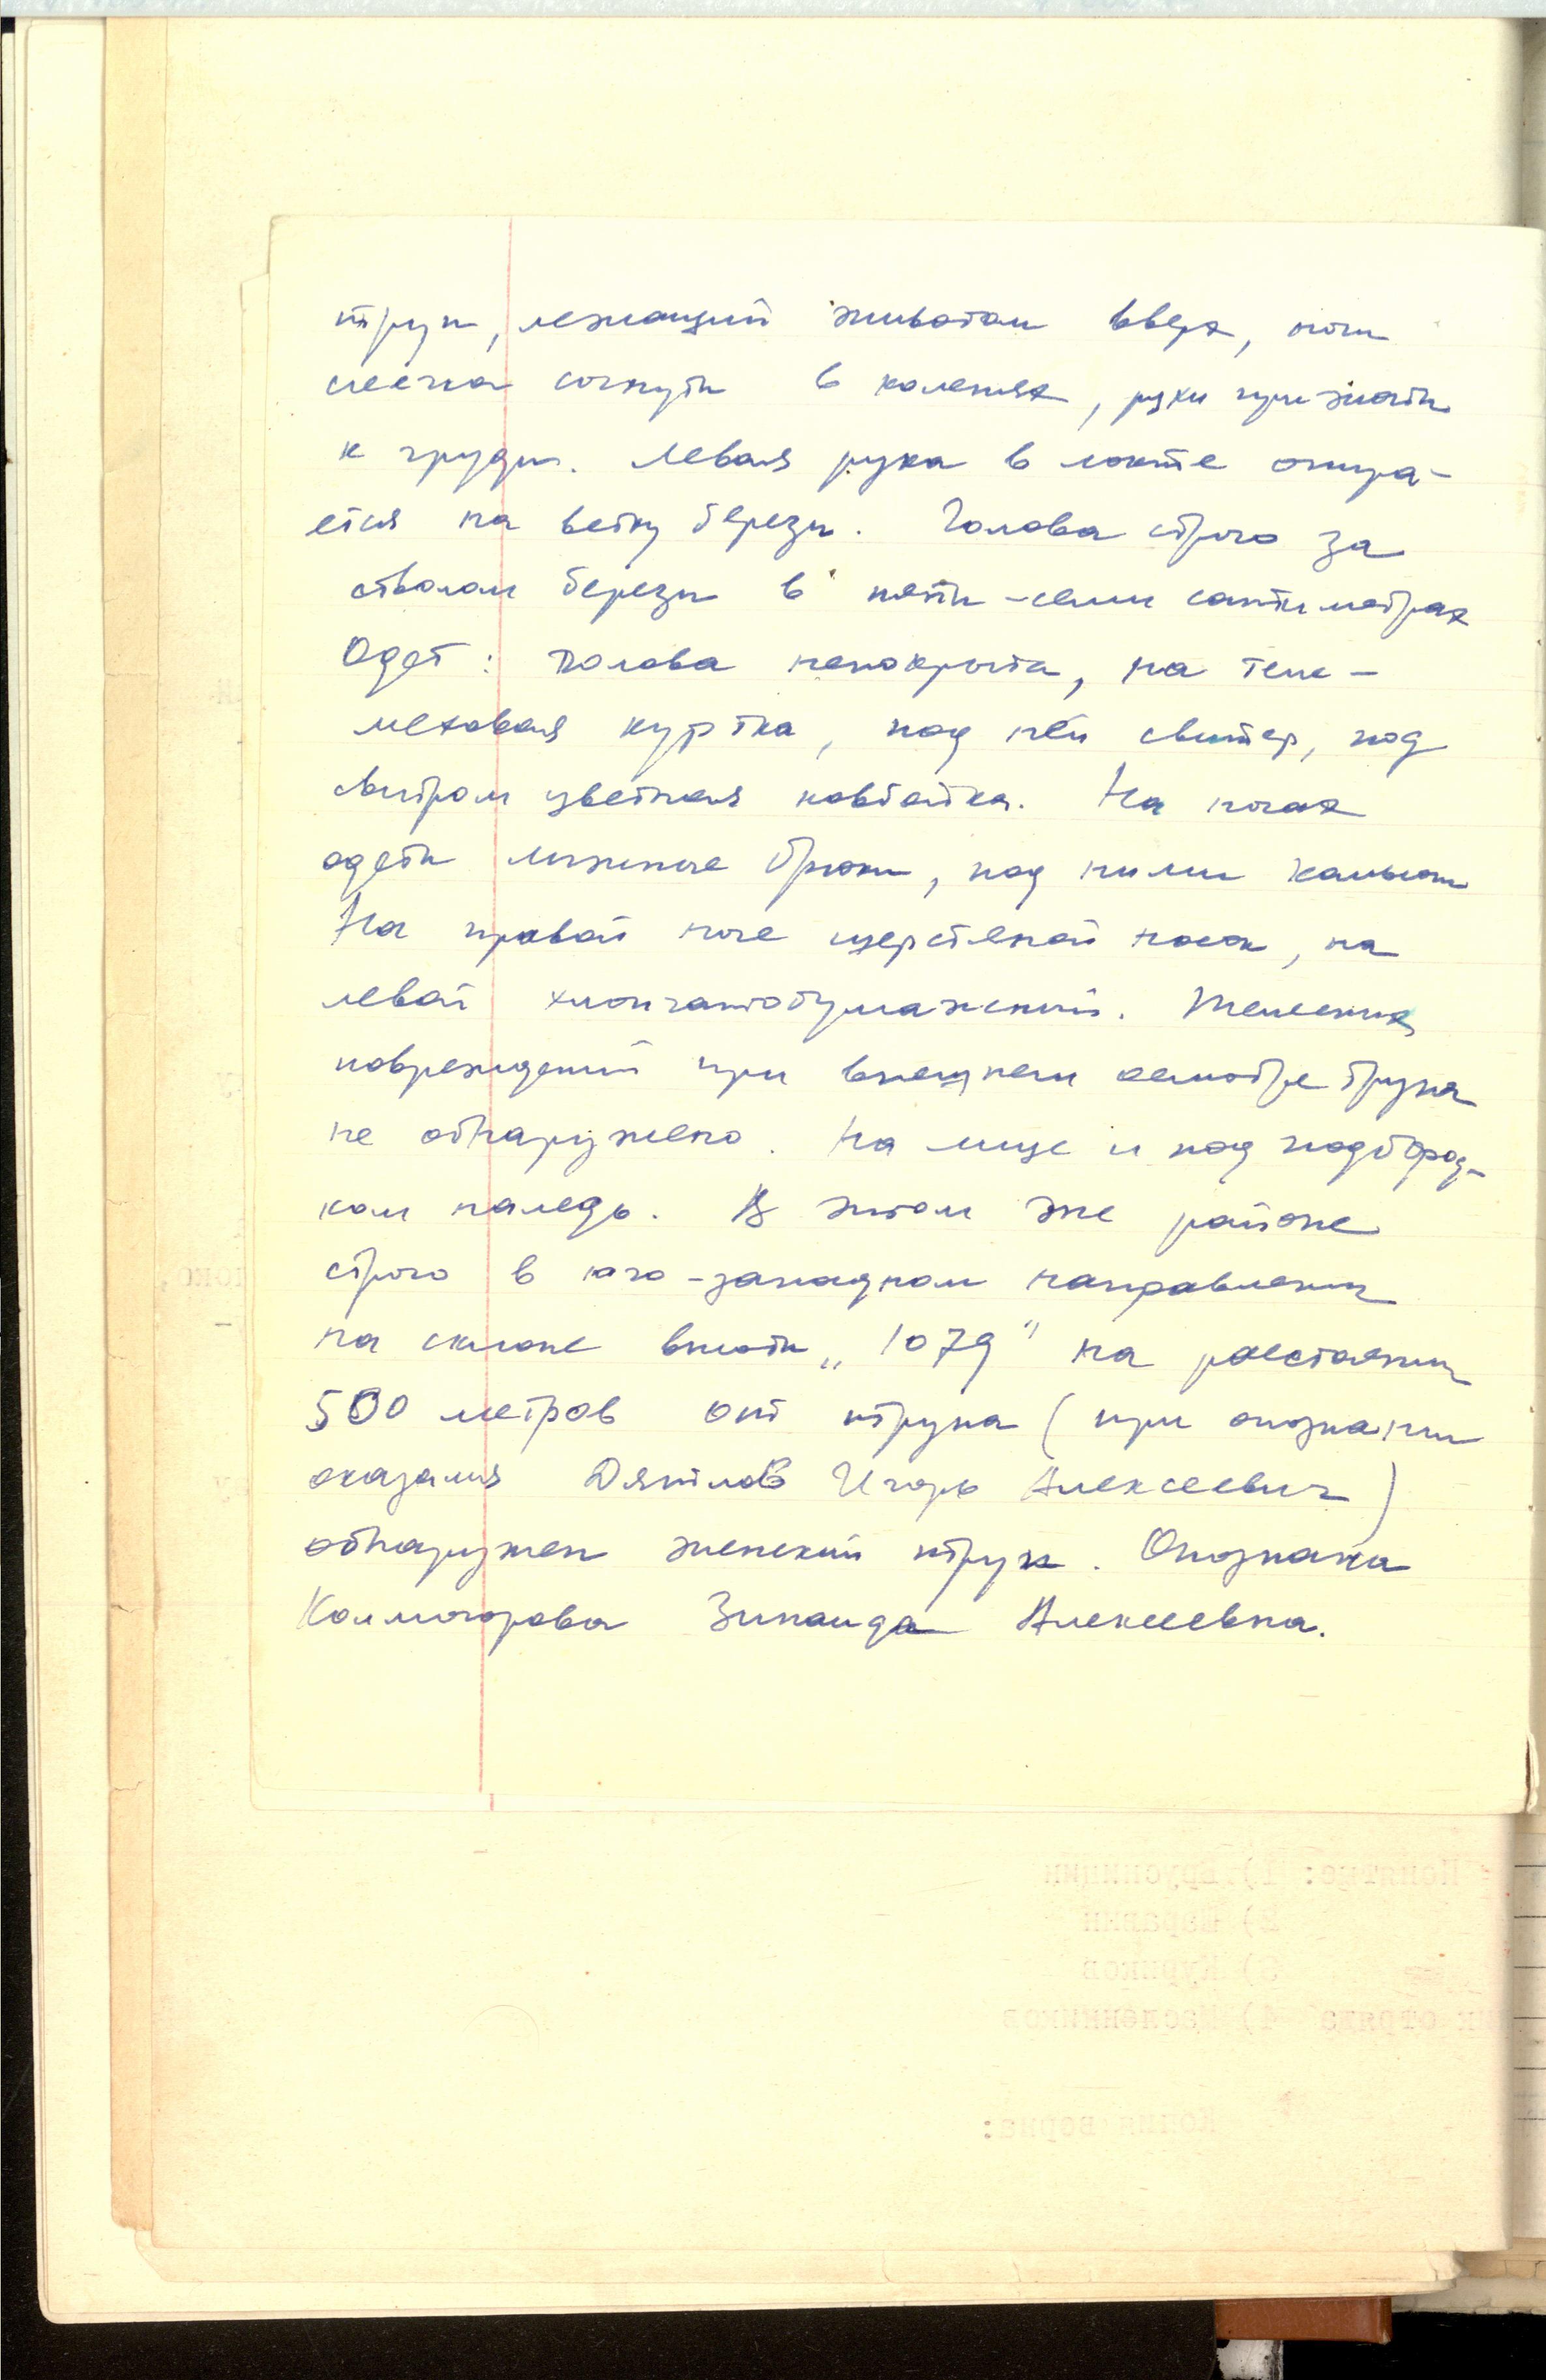 труп, лежащий животом вверх, ноги
слегка согнуты в коленях, руки прижаты
к груди. Левая рука в локте опира-
ется на ветку березы. Голова строго за
стволом березы в пяти-семи сантиметрах
Одет: голова непокрыта, на теле -
меховая куртка, под ней свитер, под
свитром цветная ковбойка. На ногах
одеты лыжные брюки, под ними кальсоны
На правой ноге шерстяной носок, на
левой хлопчатобумажный. Телесных
повреждений при внешнем осмотре трупа
не обнаружено. На лице и под подбород-
ком наледь. В этом же районе
строго в юго-западном направлении
на склоне высоты „1079" на расстоянии
500 метров от трупа (при опознании
оказался Дятлов Игорь Алексеевич)
обнаружен женский труп. Опознана
Колмогорова Зинаида Алексеевна.
Понятые: 1) Брусницин
2) Шаравин
3) Куриков
отряда 4) Масленников
Копия верна: